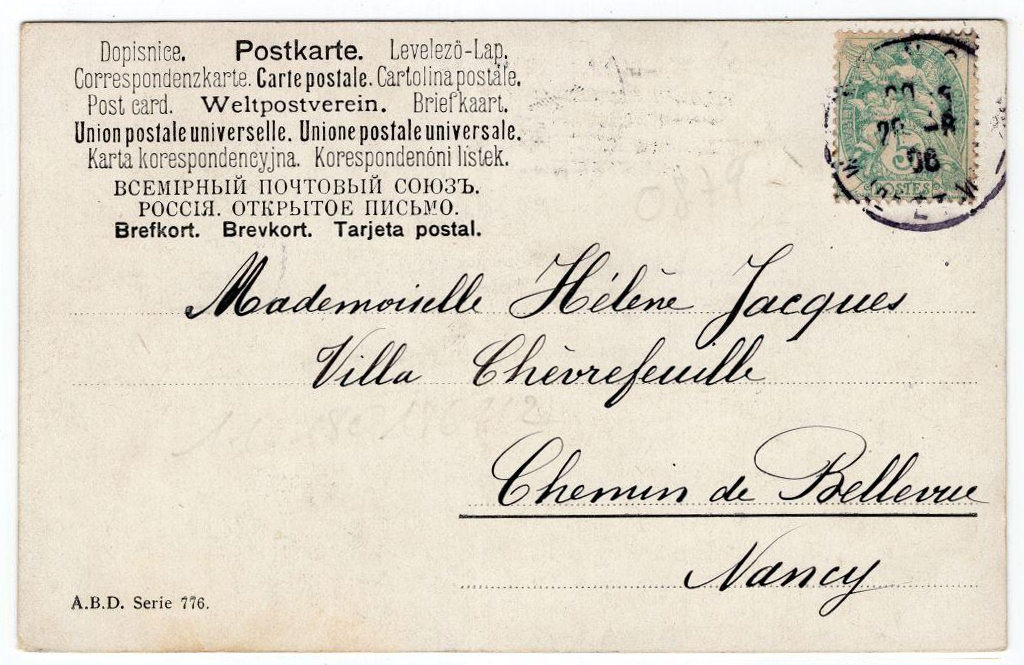 Dopisnice. Postkarte. Levelező-Lap.
Correspondenzkarte. Carte postale. Cartolina postale.
Post card. Weltpostverein. Briefkaart.
Union postale universelle. Unione postale universale.
Karta korespondencyjna. Korespondenóni lístek.
ВСЕМІРНЫЙ ПОЧТОВЫЙ СОЮЗЪ.
РОССІЯ. ОТКРЫТОЕ ПИСЬМО.
Brefkort. Brevkort. Tarjeta postal.
5
POSTES
06
0879
Mademoiselle Hélène Jacques
Villa Chèvrefeuille
Chemin de Bellevue
Nancy
A.B.D. Serie 776.